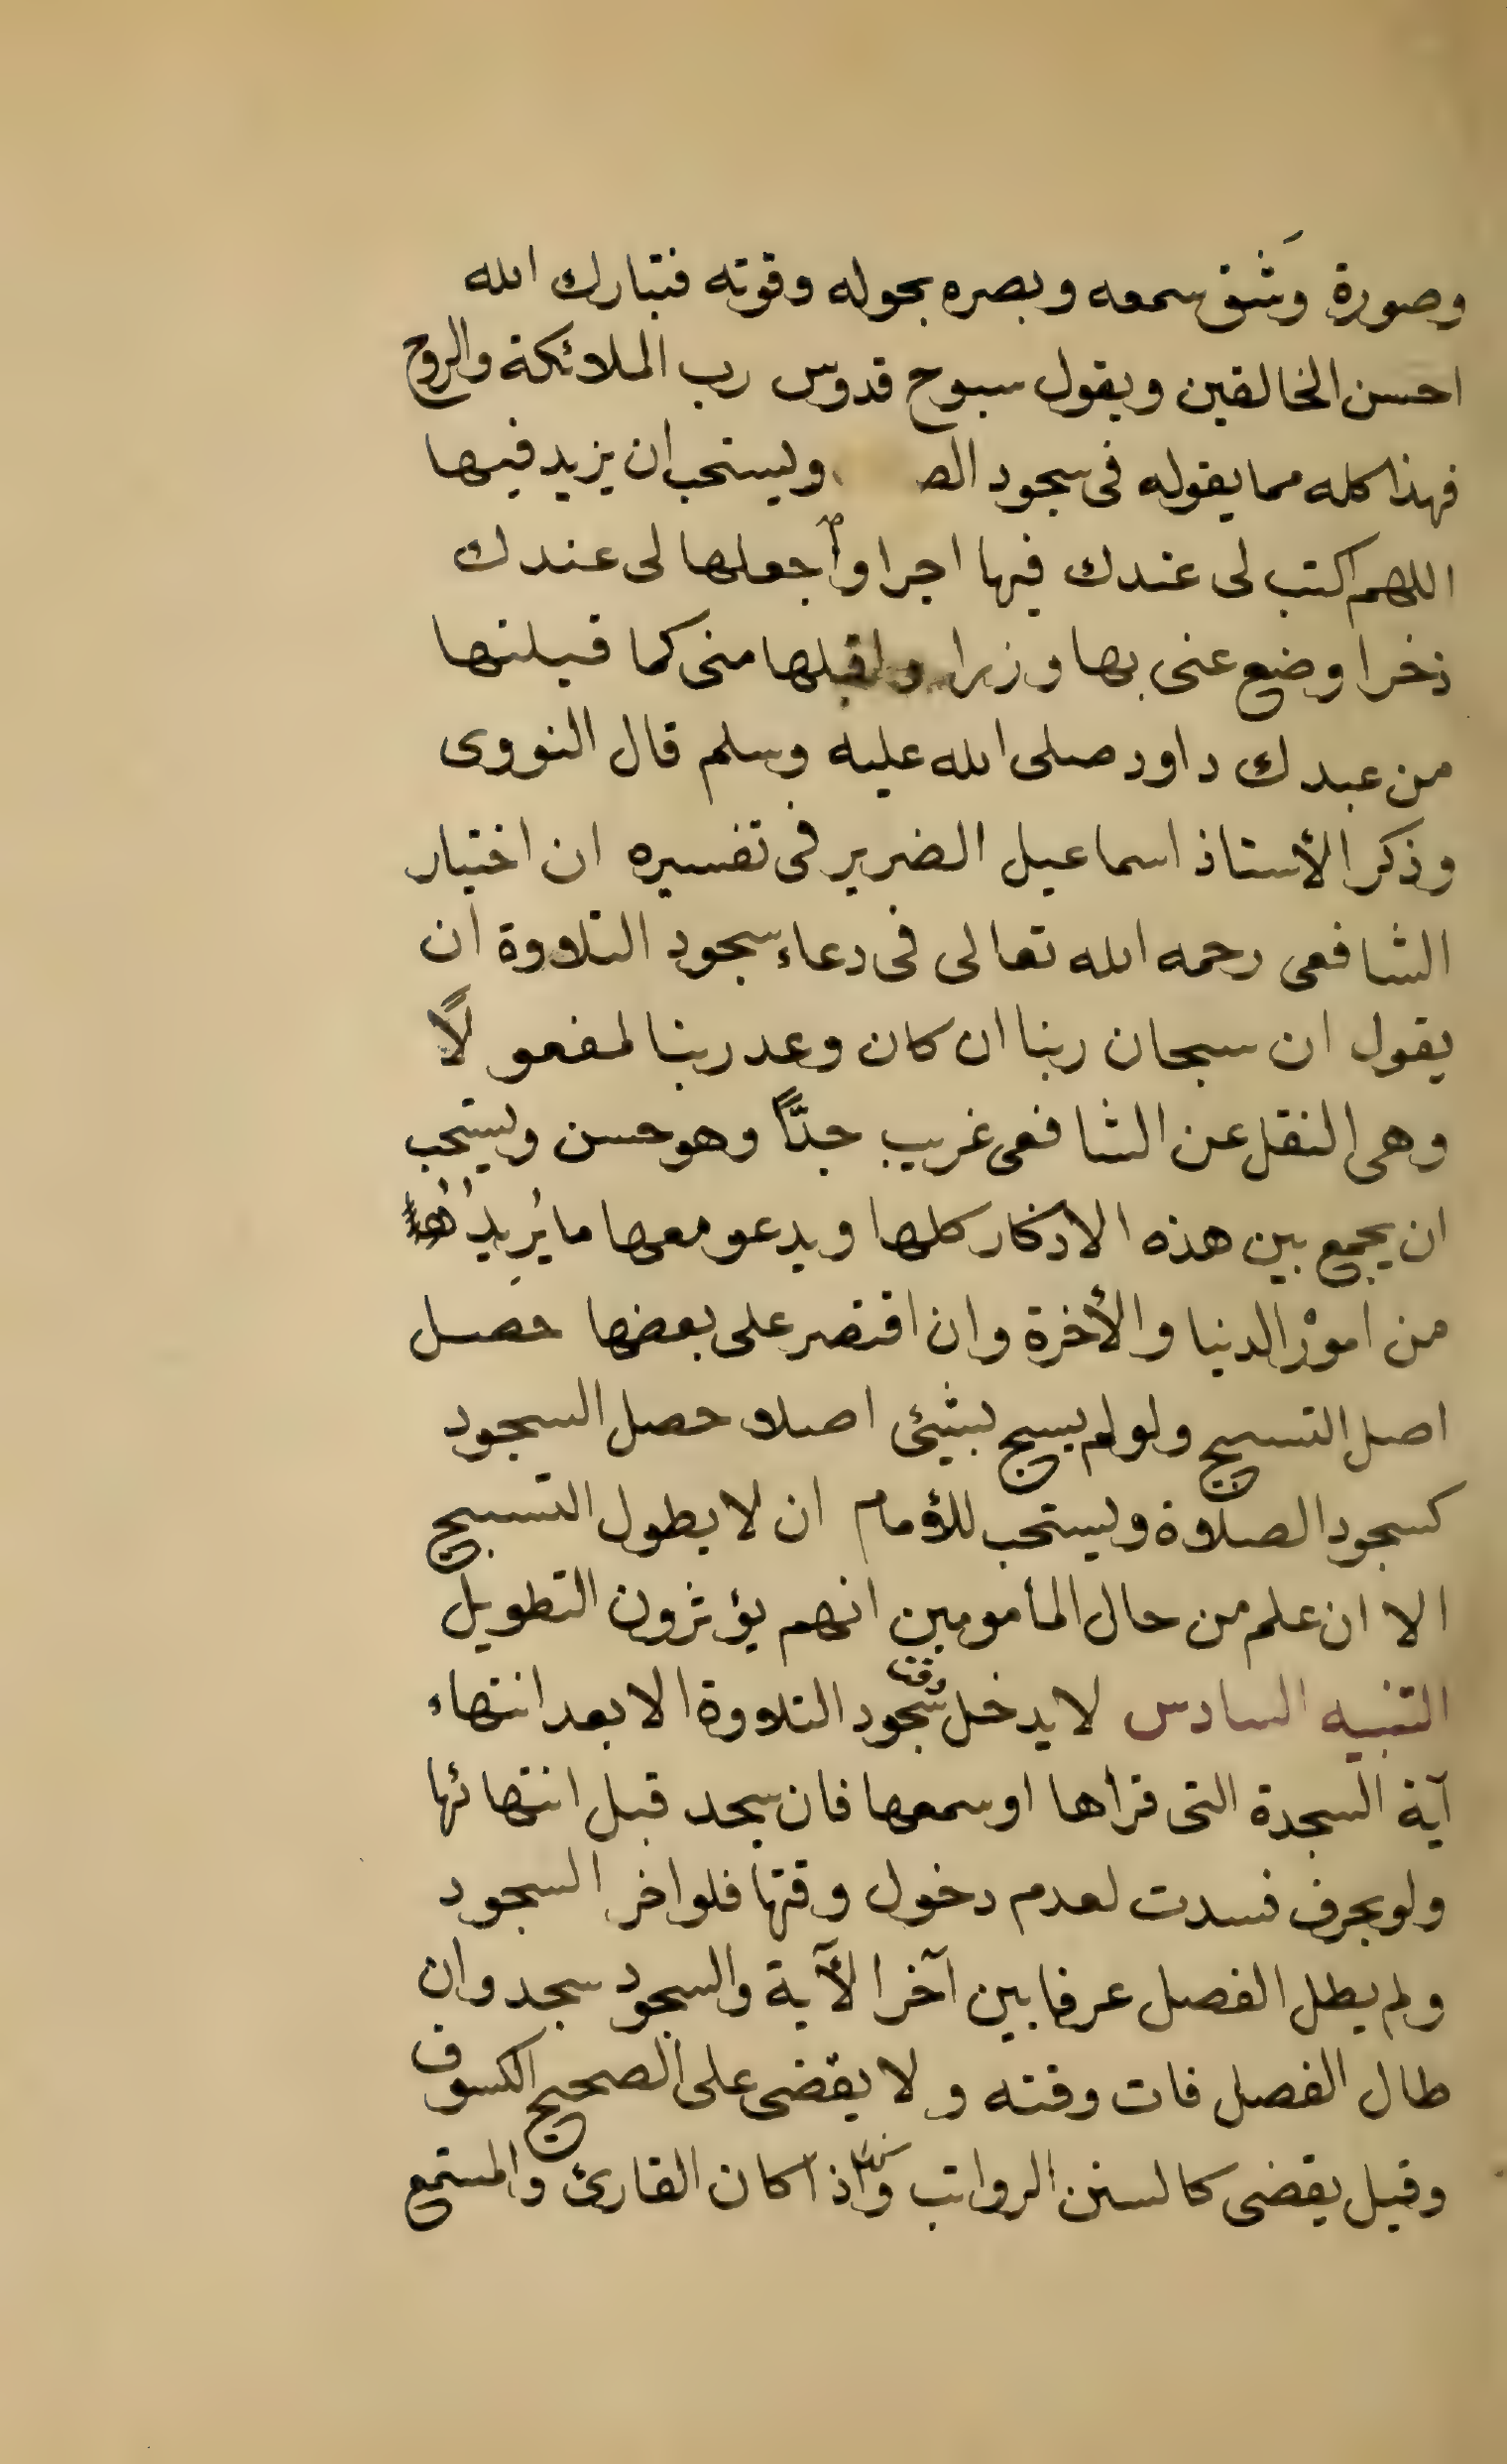 وصورة وشق سمعه وبصره بحوله وقوته فتبارك الله
احسن الخالقين ويقول سبوح قدوس رب الملائكة والروح
فهذا كله مما يقوله فى سجود الصـ ويستحب ان يزيد فيها
اللهم اكتب لى عندك فيها اجرا واجعلها لى عندك
ذخرا وضع عنى بها وزرا واقبلها منى كما قبلتها
من عبدك داود صلى الله عليه وسلم قال النووى
وذكر الأستاذ اسماعيل الضرير فى تفسيره ان اختيار
الشافعى رحمه الله تعالى فى دعاء سجود التلاوة ان
يقول ان سبحان ربنا ان كان وعد ربنا لمفعولًا
وهى النقل عن الشافعى غريب جدًّا وهو حسن ويستحب
ان يجمع بين هذه الاذكار كلها ويدعو معها ما يُريد
من امورْ الدنيا والأخرة وان اقتصر على بعضها حصل
اصل التسبيح ولو لم يسبح بشيئ اصلا حصل السجود
كسجود الصلاوة ويستحب للأمام ان لا يطول التسبيح
الا ان علم من حال المأمومين انهم يؤثرون التطويل
التنبيه السادس لا يدخل وقت سجود التلاوة الا بعد انتهاء
آية السجدة التى قراها او سمعها فان سجد قبل انتهائها
ولو بحرف فسدت لعدم دخول وقتها فلو اخر السجود
ولم يطل الفصل عرفا بين آخر الآية والسجود سجد وان
طال الفصل فات وقته و لا يقضى على الصحيح الكسوف
وقيل يقضى كالسنن الرواتب واذا كان القارئ والمستمع